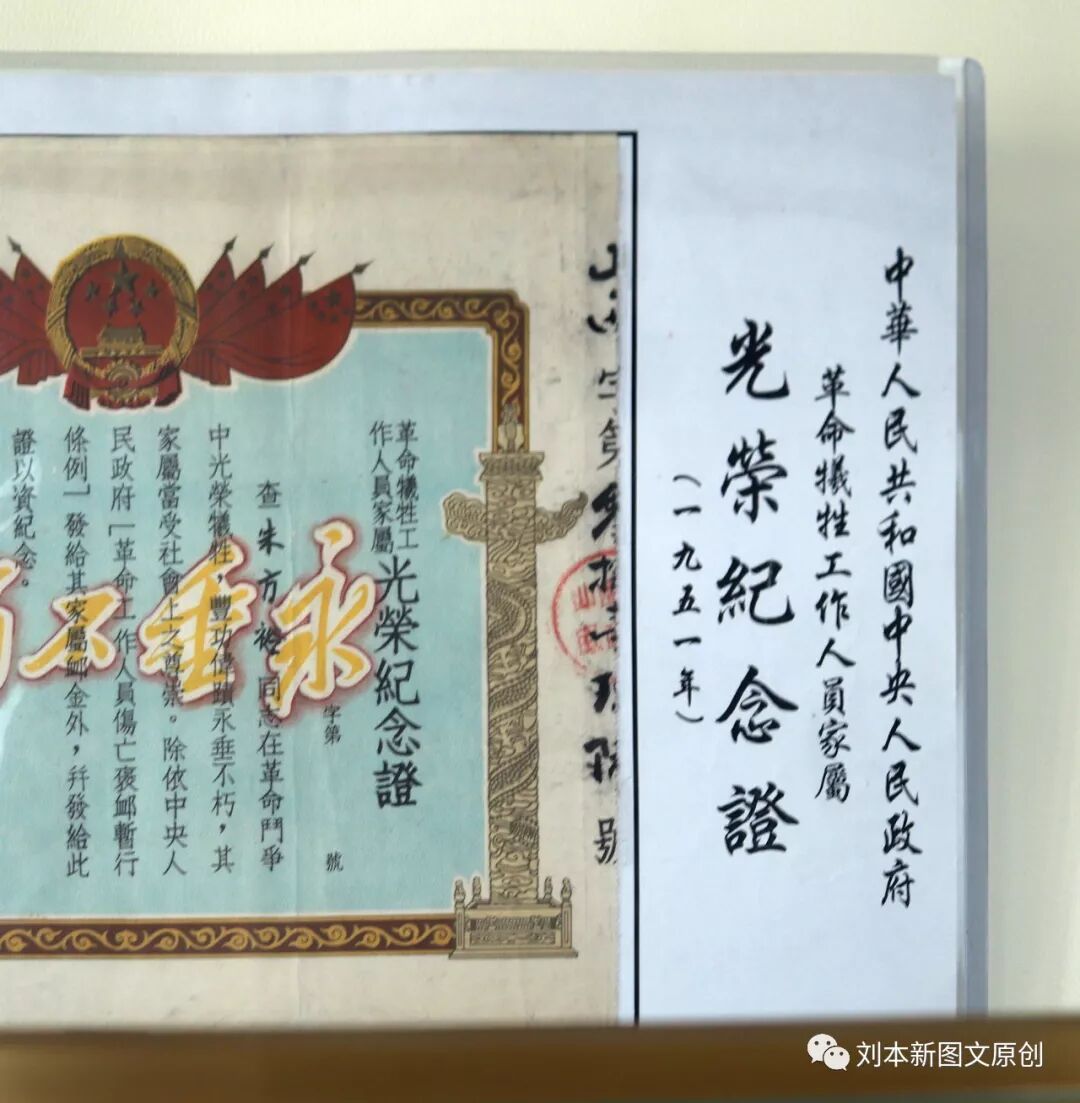 中華人民共和國中央人民政府
革命犧牲工作人員家屬
光榮紀念證
（一九五一年）
號
革命犧牲工
作人員家屬
光榮紀念證
字第 號
查朱方 同志在革命鬥爭
中光榮犧牲，豐功偉蹟永垂不朽，其
家屬當受社會上之尊崇。除依中央人
民政府「革命工作人員傷亡褒卹暫行
條例」發給其家屬卹金外，幷發給此
證以資紀念。
永垂不
刘本新图文原创